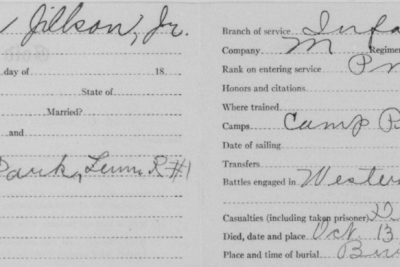 Jillson, Jr.
day of 18
State of
Married?
and
Park, Tenn. R#1
Branch of service Infa
Company M Regimen
Rank on entering service
Honors and citations
Where trained
Camps Camp
Date of sailing
Transfers
Battles engaged in Western
Casualties (including taken prisoner)
Died, date and place Oct. 13
Place and time of burial